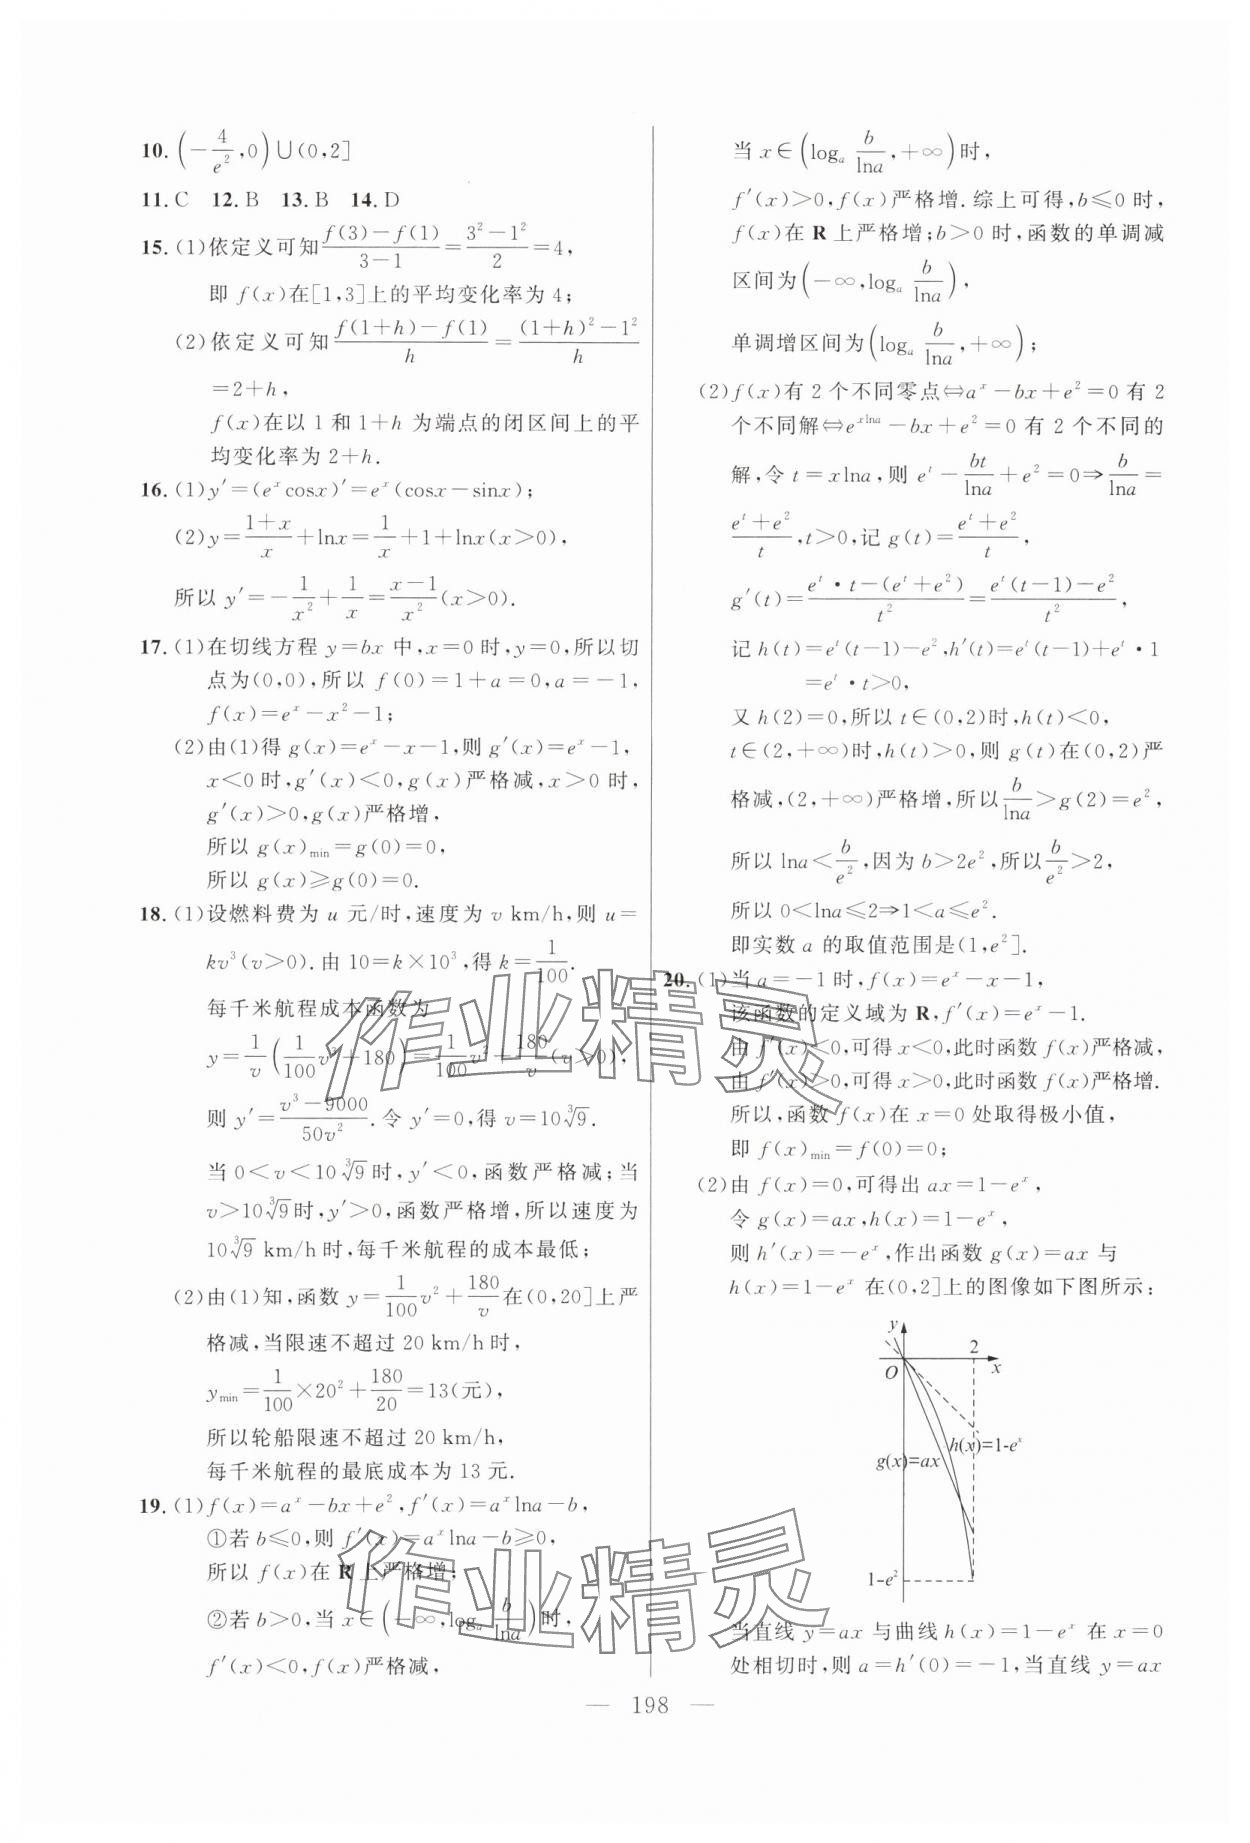 10. (-4/e²,0)∪(0,2]
11. C 12. B 13. B 14. D
15. (1)依定义可知 (f(3)-f(1))/(3-1)=(3²-1²)/2=4,
即 f(x)在[1,3]上的平均变化率为 4;
(2)依定义可知 (f(1+h)-f(1))/h=((1+h)²-1²)/h
=2+h,
f(x)在以 1 和 1+h 为端点的闭区间上的平
均变化率为 2+h.
16. (1)y′=(eˣcosx)′=eˣ(cosx-sinx);
(2)y=(1+x)/x+lnx=1/x+1+lnx(x>0),
所以 y′=-1/x²+1/x=(x-1)/x²(x>0).
17. (1)在切线方程 y=bx 中,x=0 时,y=0,所以切
点为(0,0),所以 f(0)=1+a=0,a=-1,
f(x)=eˣ-x²-1;
(2)由(1)得 g(x)=eˣ-x-1,则 g′(x)=eˣ-1,
x<0 时,g′(x)<0,g(x)严格减,x>0 时,
g′(x)>0,g(x)严格增,
所以 g(x)min=g(0)=0,
所以 g(x)≥g(0)=0.
18. (1)设燃料费为 u 元/时,速度为 v km/h,则 u=
kv³(v>0).由 10=k×10³,得 k=1/100.
每千米航程成本函数为
y=1/v(1/100v³+180)=1/100v²+180/v(v>0),
则 y′=(v³-9000)/50v².令 y′=0,得 v=10∛9.
当 0<v<10∛9时,y′<0,函数严格减;当
v>10∛9时,y′>0,函数严格增,所以速度为
10∛9 km/h 时,每千米航程的成本最低;
(2)由(1)知,函数 y=1/100v²+180/v在(0,20]上严
格减,当限速不超过 20 km/h 时,
ymin=1/100×20²+180/20=13(元),
所以轮船限速不超过 20 km/h,
每千米航程的最底成本为 13 元.
19. (1)f(x)=aˣ-bx+e²,f′(x)=aˣlna-b,
①若 b≤0,则 f′(x)=aˣlna-b≥0,
所以 f(x)在 R 上严格增;
②若 b>0,当 x∈(-∞,logₐ b/lna)时,
f′(x)<0,f(x)严格减,
当 x∈(logₐ b/lna,+∞)时,
f′(x)>0,f(x)严格增.综上可得,b≤0 时,
f(x)在 R 上严格增;b>0 时,函数的单调减
区间为(-∞,logₐ b/lna),
单调增区间为(logₐ b/lna,+∞);
(2)f(x)有 2 个不同零点⇔aˣ-bx+e²=0 有 2
个不同解⇔eˣˡⁿᵃ-bx+e²=0 有 2 个不同的
解,令 t=xlna,则 eᵗ-bt/lna+e²=0⇒b/lna=
(eᵗ+e²)/t,t>0,记 g(t)=(eᵗ+e²)/t,
g′(t)=(eᵗ·t-(eᵗ+e²))/t²=(eᵗ(t-1)-e²)/t²,
记 h(t)=eᵗ(t-1)-e²,h′(t)=eᵗ(t-1)+eᵗ·1
=eᵗ·t>0,
又 h(2)=0,所以 t∈(0,2)时,h(t)<0,
t∈(2,+∞)时,h(t)>0,则 g(t)在(0,2)严
格减,(2,+∞)严格增,所以b/lna>g(2)=e²,
所以 lna<b/e²,因为 b>2e²,所以b/e²>2,
所以 0<lna≤2⇒1<a≤e².
即实数 a 的取值范围是(1,e²].
20. (1)当 a=-1 时,f(x)=eˣ-x-1,
该函数的定义域为 R,f′(x)=eˣ-1.
由 f′(x)<0,可得 x<0,此时函数 f(x)严格减,
由 f′(x)>0,可得 x>0,此时函数 f(x)严格增.
所以,函数 f(x)在 x=0 处取得极小值,
即 f(x)min=f(0)=0;
(2)由 f(x)=0,可得出 ax=1-eˣ,
令 g(x)=ax,h(x)=1-eˣ,
则 h′(x)=-eˣ,作出函数 g(x)=ax 与
h(x)=1-eˣ 在(0,2]上的图像如下图所示:
y
2
O
x
h(x)=1-eˣ
g(x)=ax
1-e²
当直线 y=ax 与曲线 h(x)=1-eˣ 在 x=0
处相切时,则 a=h′(0)=-1,当直线 y=ax
— 198 —
作业精灵
作业精灵